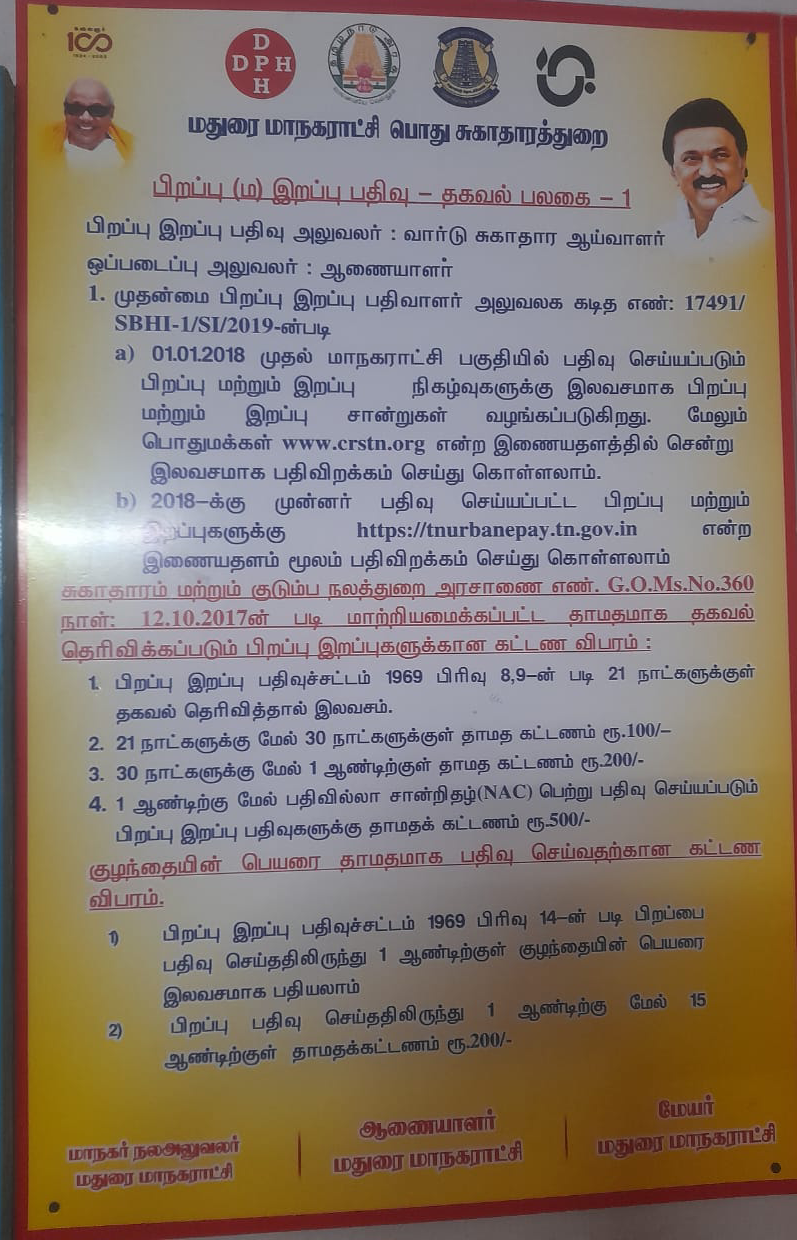 100
D
DPH
H
மதுரை மாநகராட்சி பொது சுகாதாரத்துறை
பிறப்பு (ம) இறப்பு பதிவு – தகவல் பலகை – 1
பிறப்பு இறப்பு பதிவு அலுவலர் : வார்டு சுகாதார ஆய்வாளர்
ஒப்படைப்பு அலுவலர் : ஆணையாளர்
1. முதன்மை பிறப்பு இறப்பு பதிவாளர் அலுவலக கடித எண்: 17491/
SBHI-1/SI/2019-ன்படி
a) 01.01.2018 முதல் மாநகராட்சி பகுதியில் பதிவு செய்யப்படும்
பிறப்பு மற்றும் இறப்பு நிகழ்வுகளுக்கு இலவசமாக பிறப்பு
மற்றும் இறப்பு சான்றுகள் வழங்கப்படுகிறது. மேலும்
பொதுமக்கள் www.crstn.org என்ற இணையதளத்தில் சென்று
இலவசமாக பதிவிறக்கம் செய்து கொள்ளலாம்.
b) 2018–க்கு முன்னர் பதிவு செய்யப்பட்ட பிறப்பு மற்றும்
இறப்புகளுக்கு https://tnurbanepay.tn.gov.in என்ற
இணையதளம் மூலம் பதிவிறக்கம் செய்து கொள்ளலாம்
சுகாதாரம் மற்றும் குடும்ப நலத்துறை அரசாணை எண். G.O.Ms.No.360
நாள்: 12.10.2017ன் படி மாற்றியமைக்கப்பட்ட தாமதமாக தகவல்
தெரிவிக்கப்படும் பிறப்பு இறப்புகளுக்கான கட்டண விபரம் :
1. பிறப்பு இறப்பு பதிவுச்சட்டம் 1969 பிரிவு 8,9–ன் படி 21 நாட்களுக்குள்
தகவல் தெரிவித்தால் இலவசம்.
2. 21 நாட்களுக்கு மேல் 30 நாட்களுக்குள் தாமத கட்டணம் ரூ.100/–
3. 30 நாட்களுக்கு மேல் 1 ஆண்டிற்குள் தாமத கட்டணம் ரூ.200/-
4. 1 ஆண்டிற்கு மேல் பதிவில்லா சான்றிதழ்(NAC) பெற்று பதிவு செய்யப்படும்
பிறப்பு இறப்பு பதிவுகளுக்கு தாமதக் கட்டணம் ரூ.500/-
குழந்தையின் பெயரை தாமதமாக பதிவு செய்வதற்கான கட்டண
விபரம்.
1) பிறப்பு இறப்பு பதிவுச்சட்டம் 1969 பிரிவு 14–ன் படி பிறப்பை
பதிவு செய்ததிலிருந்து 1 ஆண்டிற்குள் குழந்தையின் பெயரை
இலவசமாக பதியலாம்
2) பிறப்பு பதிவு செய்ததிலிருந்து 1 ஆண்டிற்கு மேல் 15
ஆண்டிற்குள் தாமதக்கட்டணம் ரூ.200/-
மாநகர் நலஅலுவலர்
மதுரை மாநகராட்சி
ஆணையாளர்
மதுரை மாநகராட்சி
மேயர்
மதுரை மாநகராட்சி